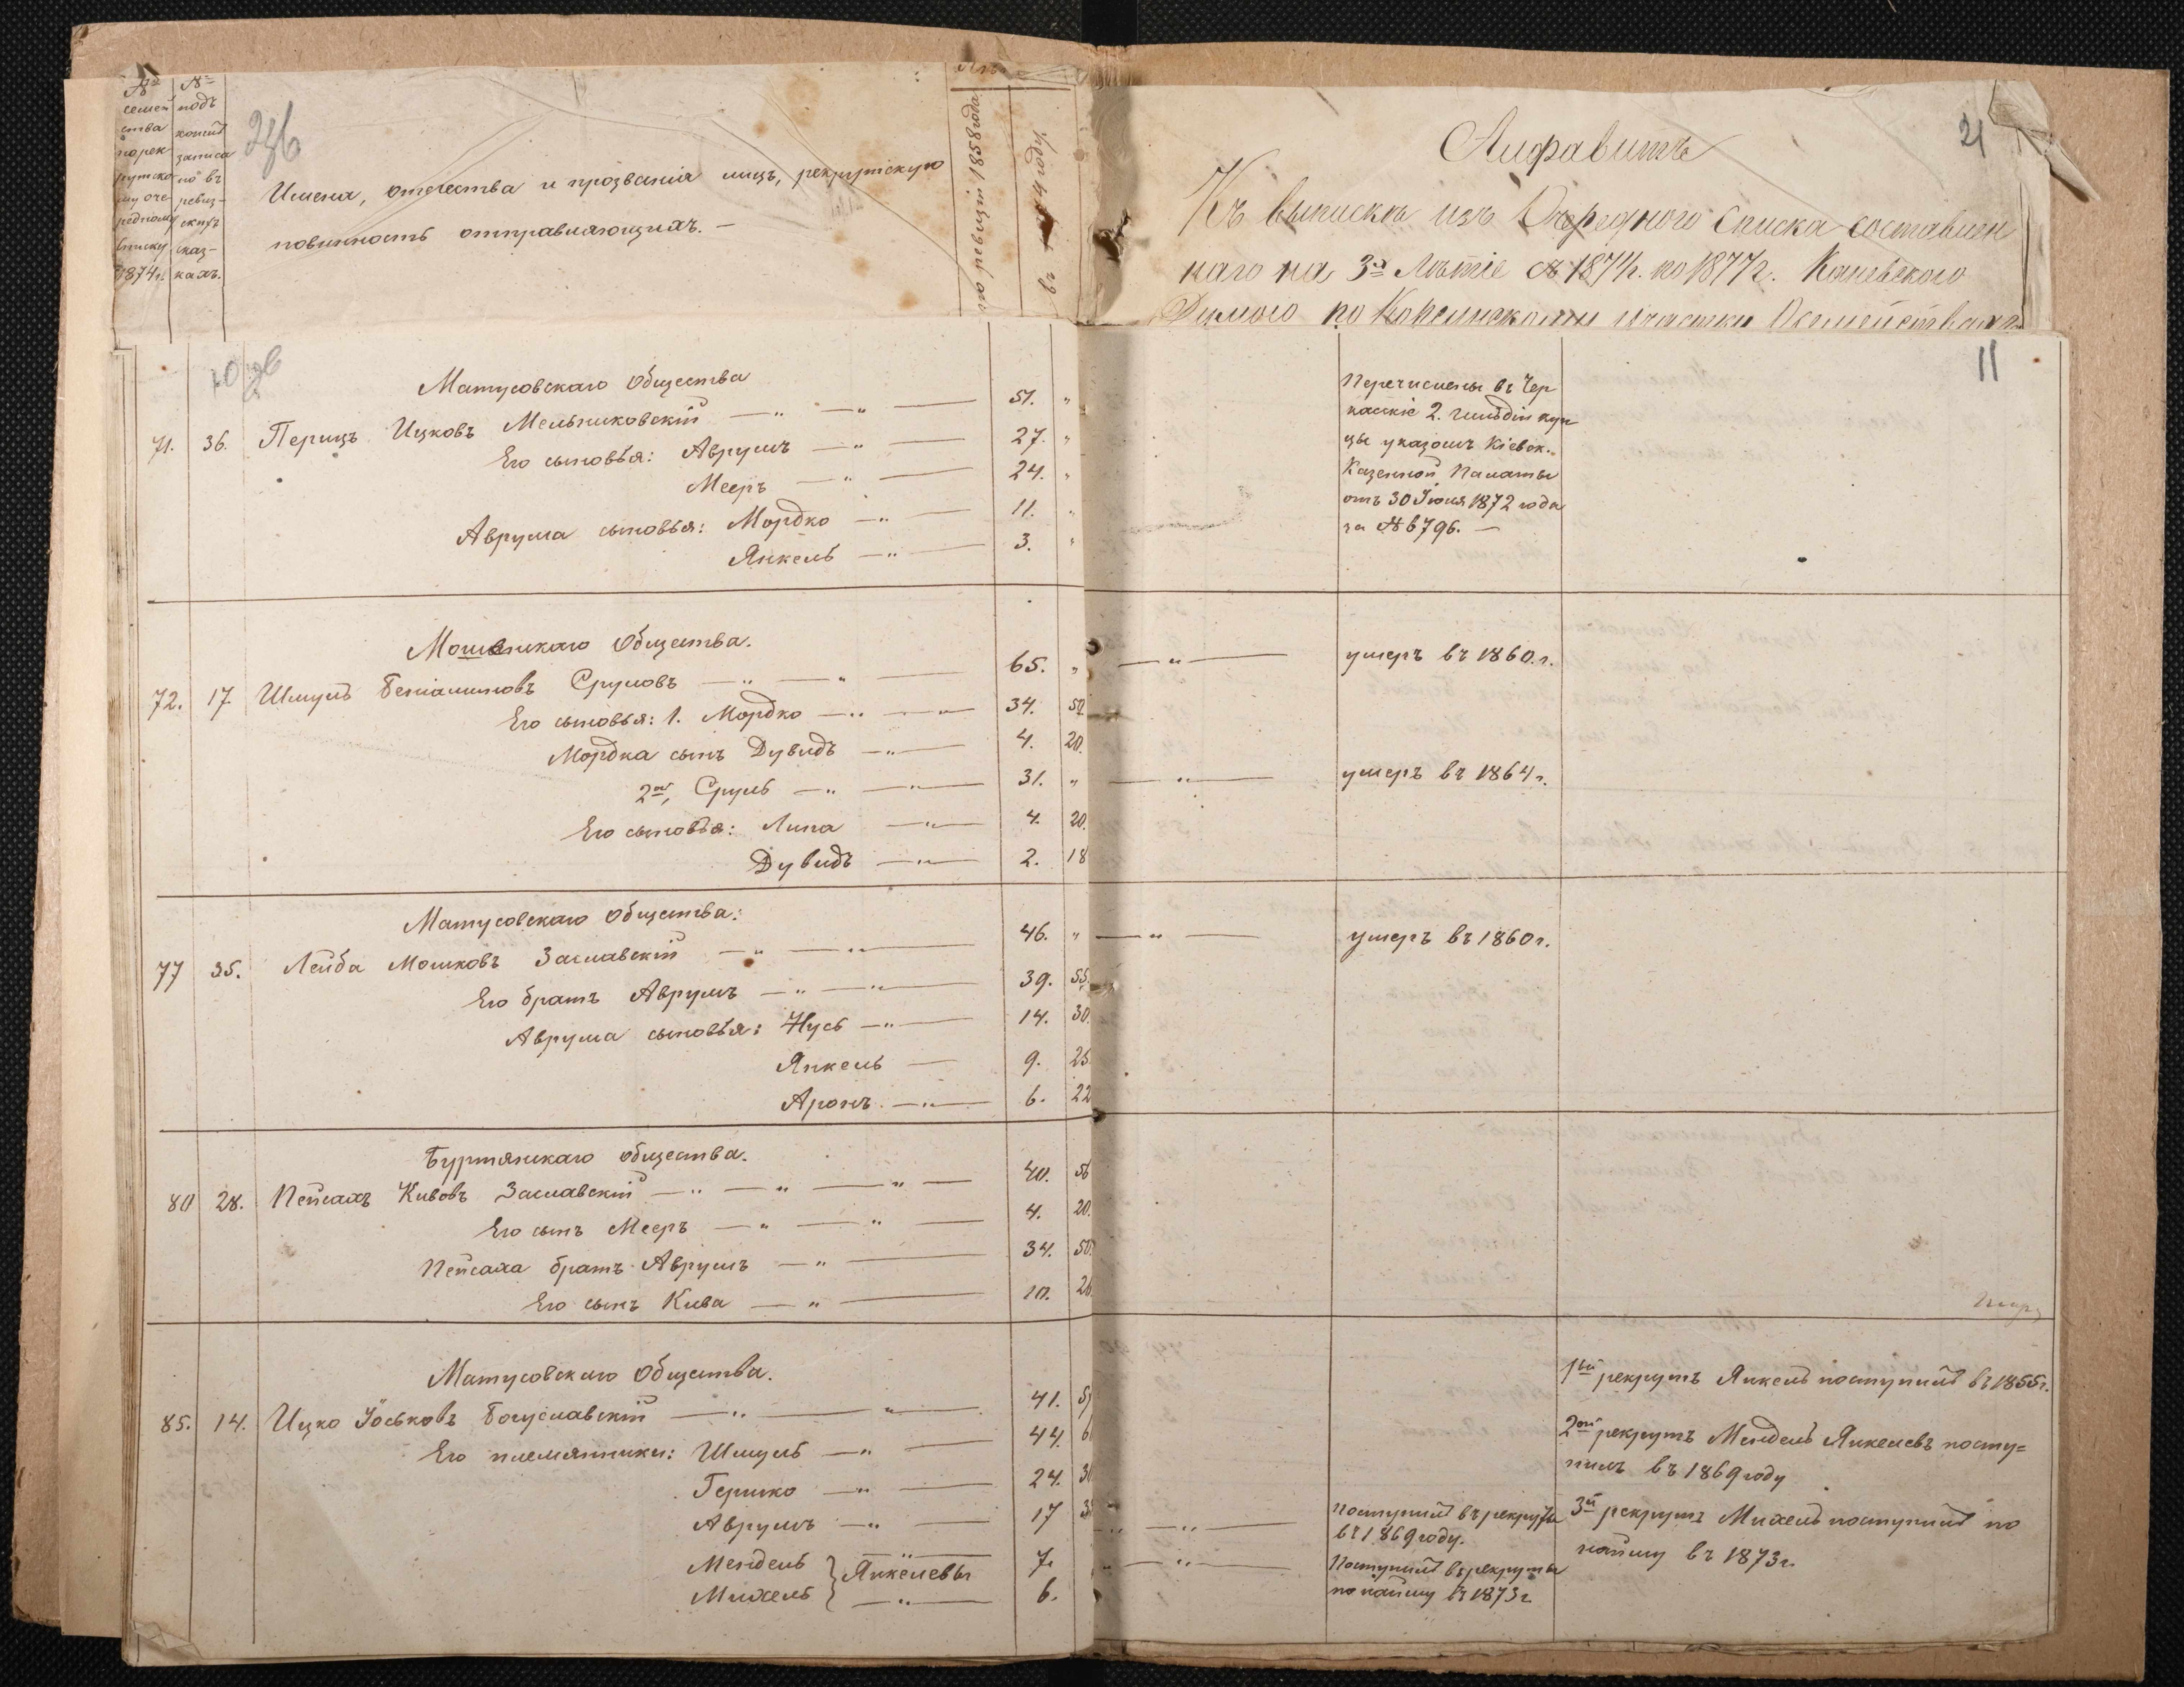 №
семей
ства
порек
рутско
му оче
редному
списку
1874г.
№
подъ
коимъ
записа
но въ
ревиз-
скихъ
сказ-
кахъ.
Имена, отечества и прозванія лицъ, рекрутскую
повинность отправляющихъ. —
по ревизіи 1858 года
въ 1874 году.
21
Алфавитъ
Къ выпискѣ изъ Очереднаго Списка составлен
наго на 3х Лѣтіе съ 1874г. по 1877г. Каневскаго
11
Матусовскаго Общества
71. 36. Перицъ Ицковъ Мельниковскій — „ — „ — 51. „
Его сыновья: Аврумъ — „ — 27. „
Мееръ — „ — 24. „
Аврума сыновья: Мордко — „ — 11. „
Янкель — „ — 3. „
Перечислены въ Чер
каскіе 2. гильдіи куп
цы указомъ Кіевск.
Казенной Палаты
отъ 30 Іюля 1872 года
за № 6796. —
Мошенскаго Общества.
72. 17. Шмуль Беніаминовъ Сруловъ — „ — „ — 65. „ — „ — умеръ въ 1860.г.
Его сыновья: 1. Мордко — „ — „ — 34. 50
Мордка сынъ Дувидъ — „ — 4. 20.
2й, Сруль — „ — „ — 31. „ — „ — умеръ въ 1864г.
Его сыновья: Липа — „ — 4. 20.
Дувидъ — „ — 2. 18
Матусовскаго Общества:
77 35. Лейба Мошковъ Заславскій — „ — „ — 46. „ — „ — умеръ въ 1860г.
Его братъ Аврумъ — „ — „ — 39. 55.
Аврума сыновья: Нусь — „ — 14. 30.
Янкель — 9. 25
Аронъ — „ — 6. 22
Буртянскаго общества.
80 28. Пейсахъ Кивовъ Заславскій — „ — „ — „ — 40. 56
Его сынъ Мееръ — „ — „ — 4. 20.
Пейсаха братъ Аврумъ — „ — 34. 50.
Его сынъ Кива — „ — 10. 26.
Матусовскаго Общества.
85. 14. Ицко Іоськовъ Богуславскій — „ — „ — 41.
Его племянники: Шмуль — „ — 44.
Гершко — „ — 24.
Аврумъ — „ — 17
Мендель } Янкелевы 7.
Михель — „ — 6.
поступилъ въ рекруты
въ 1869 году.
Поступилъ въ рекруты
по найму въ 1873г
1ый рекрутъ Янкель поступилъ въ 1855г.
2ой рекрутъ Мендель Янкелевъ посту=
пилъ въ 1869 году
3й рекрутъ Михель поступилъ по
найму въ 1873г.